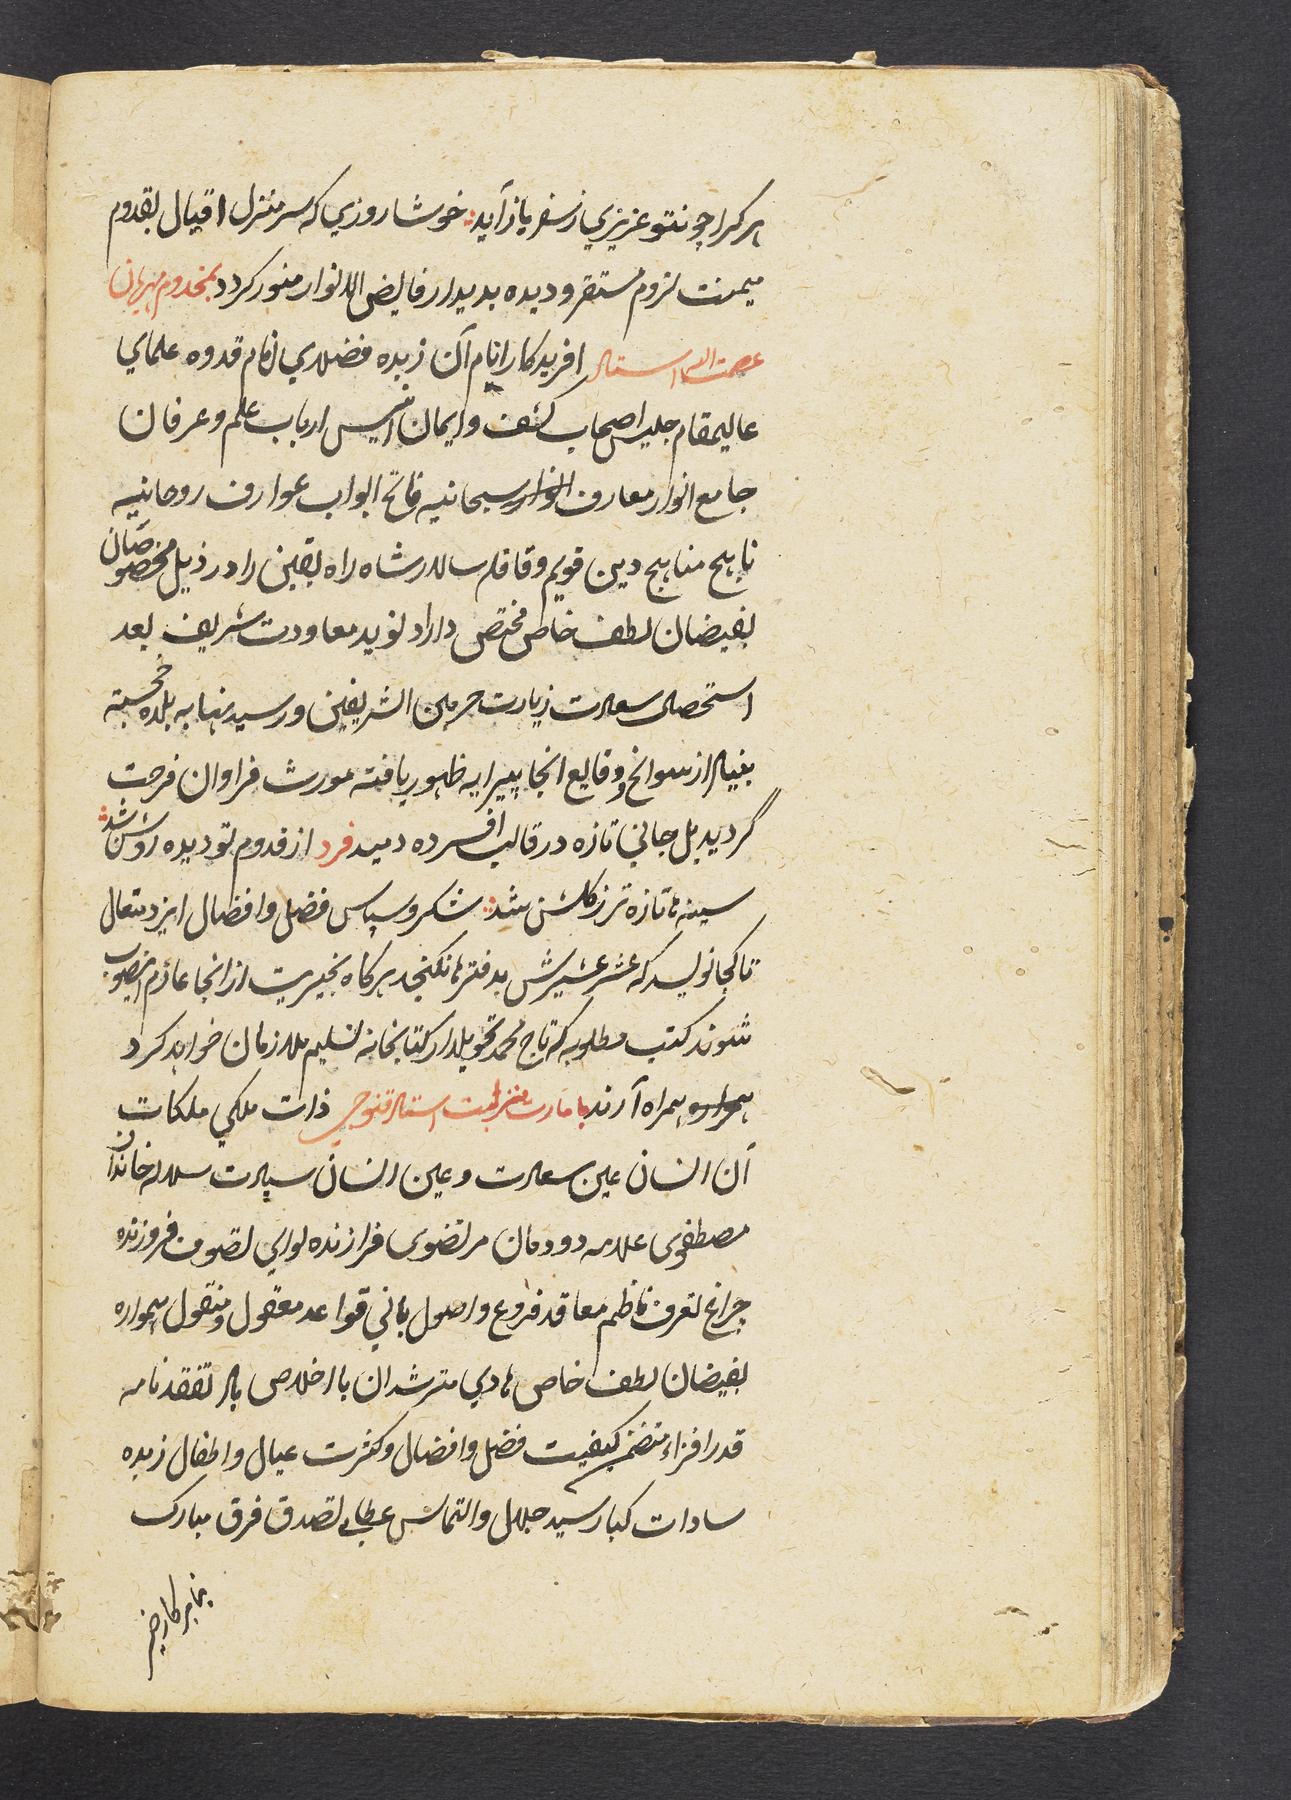 هر کرا چو نتو عزیزي ز سفر باز آید خوشا روزي که سر منزل اقبال بقدوم
میمنت لزوم مستقر و دیده بدیدار فایض الانوار منور کردد بمخدوم
افریدکار انام آن زبده فضلاي انام قدوه علماي
عالیمقام جلیس اصحاب کشف و ایمان انیس ارباب علم و عرفان
جامع انوار معارف سبحانیه فاتح ابواب عوارف روحانیه
ناهج مناهج دین قویم و قافله سالار شاه راه یقین را در ذیل مخصوصان
بفیضان لطف خاص مختص داراد نوید معاودت شریف بعد
استحصال سعادت زیارت حرمین الشریفین و رسیدنها به بلده خجسته
بنیاد از سوانح و وقایع انجا پیرایه ظهور یافته مورث فراوان فرحت
گردید بل جاني تازه در قالب افسرده دمید فرد از قدوم تو دیده روشن شد
سینه ها تازه تر ز کلشن شد شکر و سپاس فضل و افضال ایزد متعال
تا کجا نویسد که عشر عشیرش بدفترها نکنجد هر کاه بخیریت از انجا عازم اینصوب
شوند کتب مطلوبه که تاج محمد تحویلدار کتابخانه تسلیم ملازمان خواهد کرد
همراه آرند ذات ملکي ملکات
آن انسان عین سعادت و عین انسان سیادت سلاله خاندان
مصطفوی علامه دودمان مرتضوی فرازنده لواي تصوف فروزنده
چراغ تعرف ناظم معاقد فروع و اصول باني قواعد معقول و منقول همواره
بفیضان لطف خاص هادي مترشدان با اخلاص باد تفقدنامه
قدر افزاء متضمن کیفیت فضل و افضال و کثرت عیال و اطفال زبده
سادات کبار سید جلال و التماس عطاي تصدق فرق مبارک